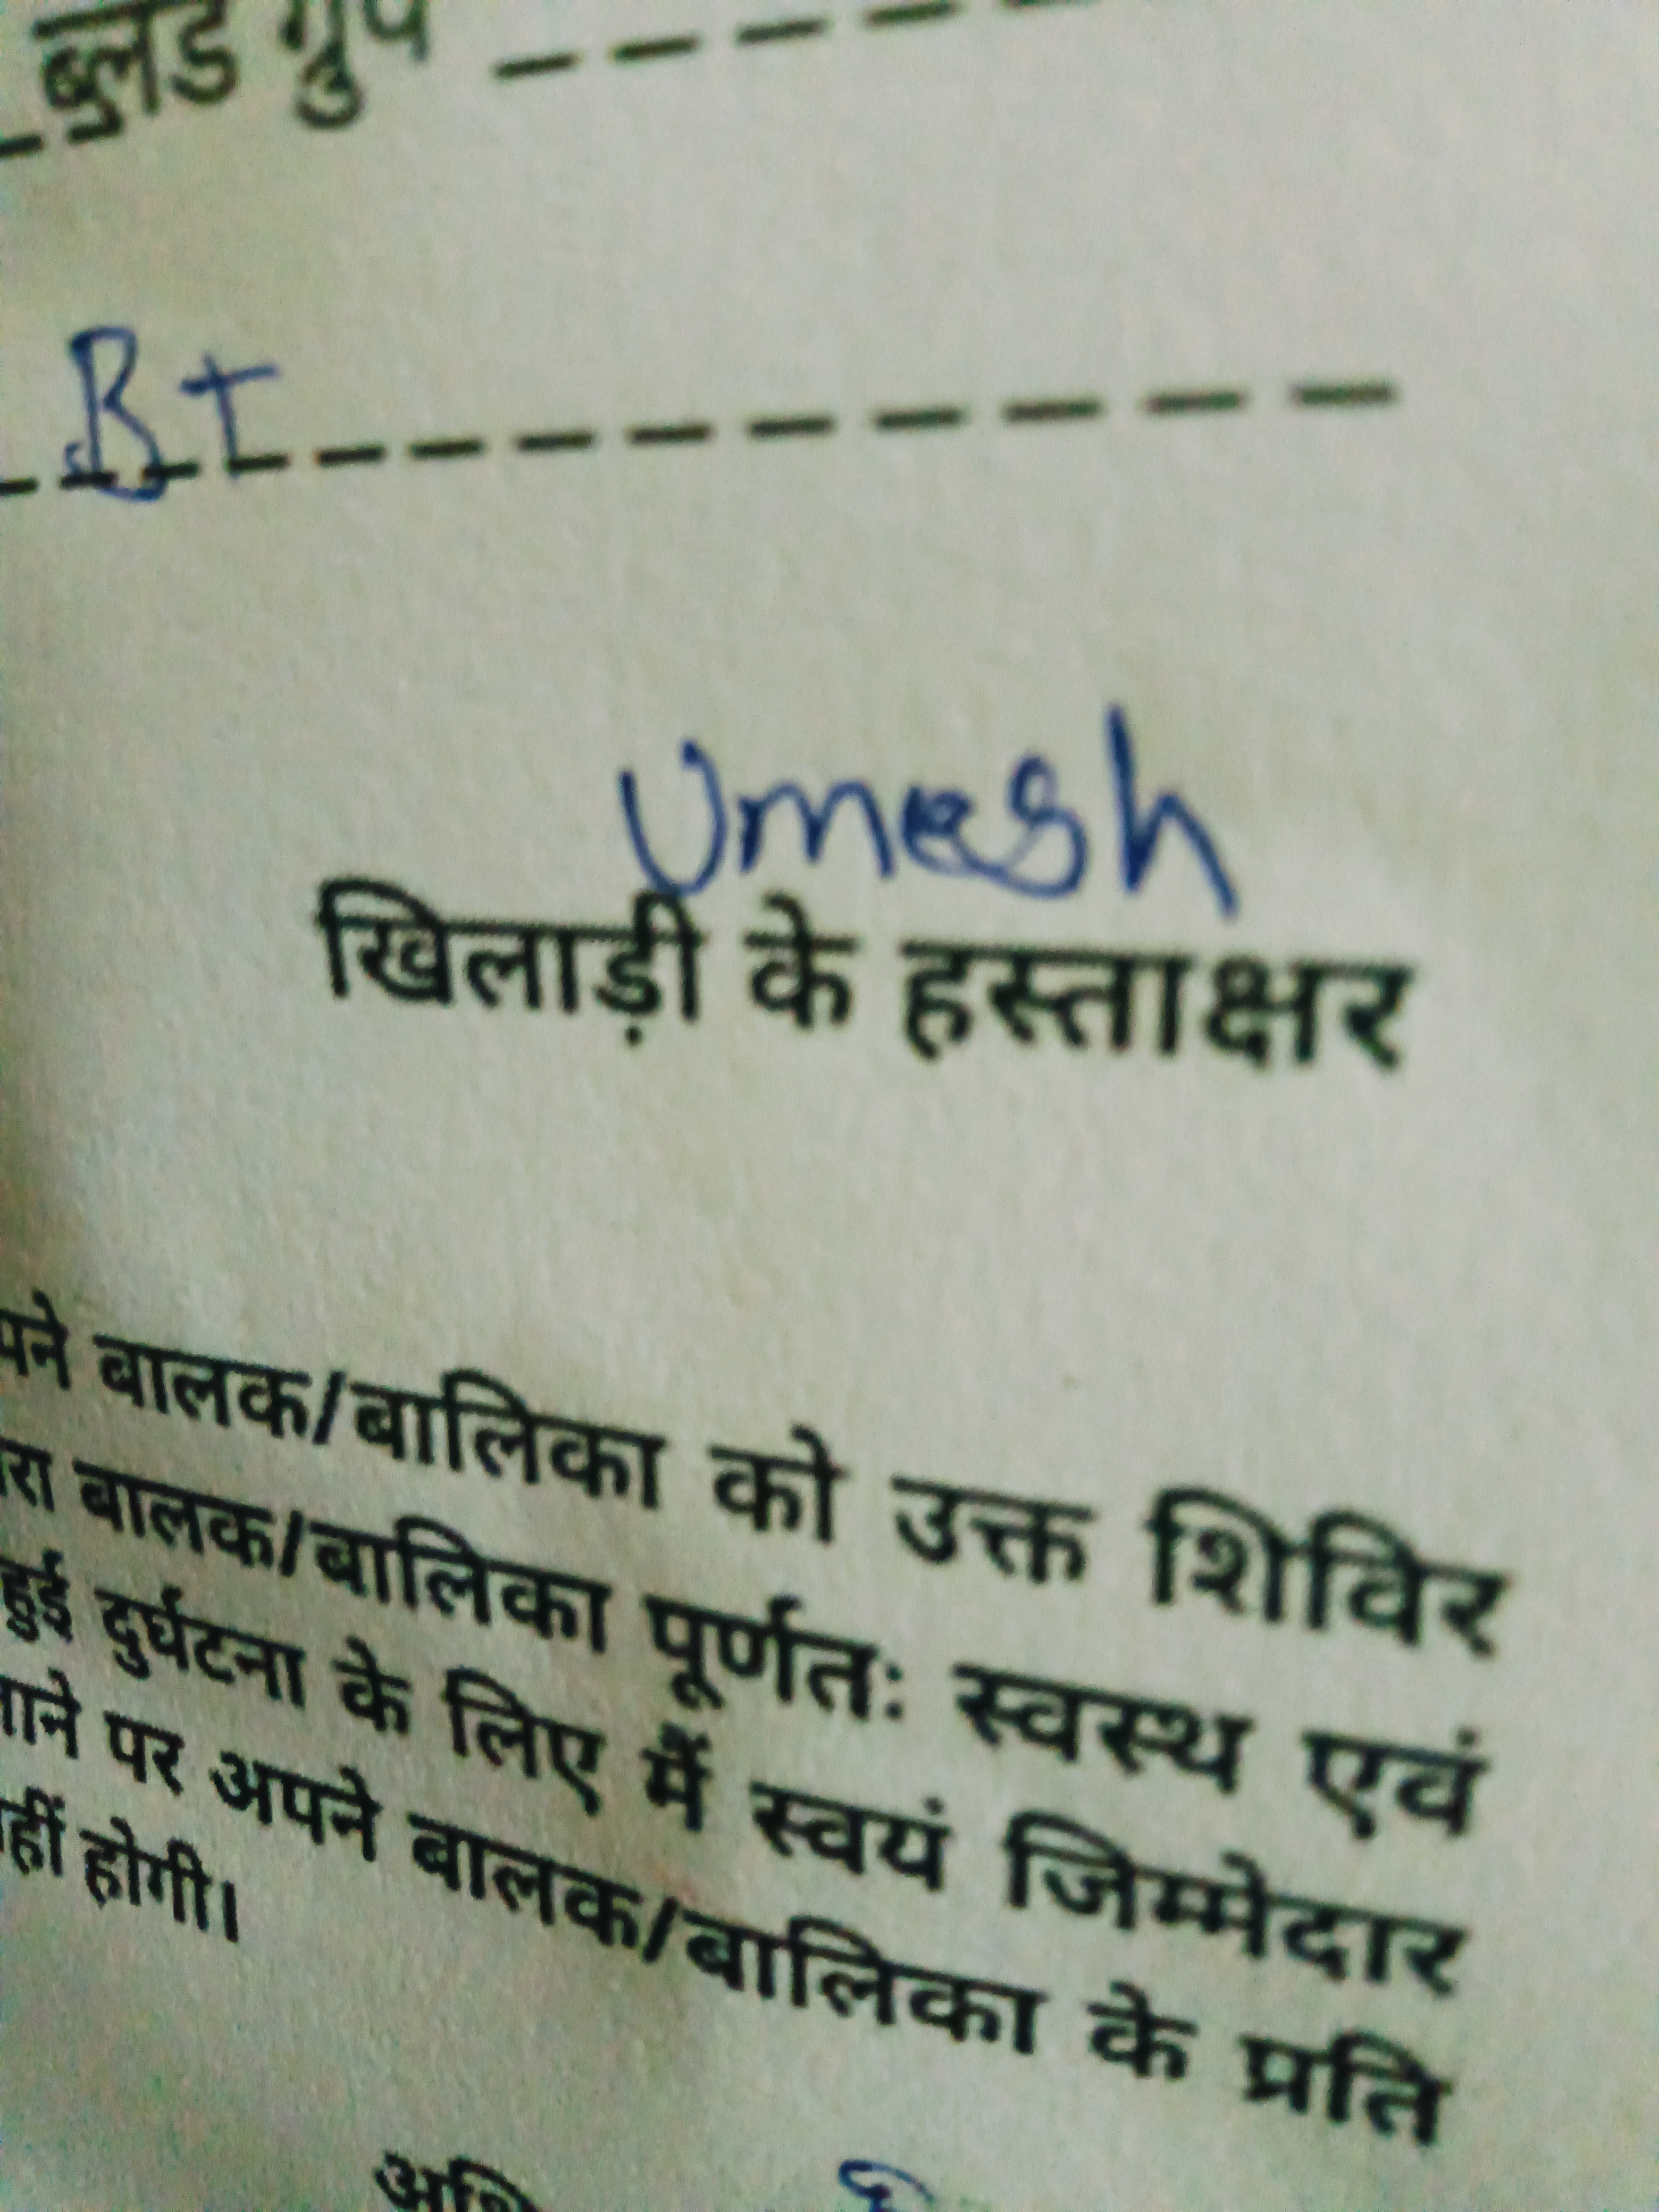 ब्लड ग्रुप
B+
Umesh
खिलाड़ी के हस्ताक्षर
बालक/बालिका को उक्त शिविर
बालक/बालिका पूर्णतः स्वस्थ एवं
हुई दुर्घटना के लिए मैं स्वयं जिम्मेदार
पर अपने बालक/बालिका के प्रति
होगी।